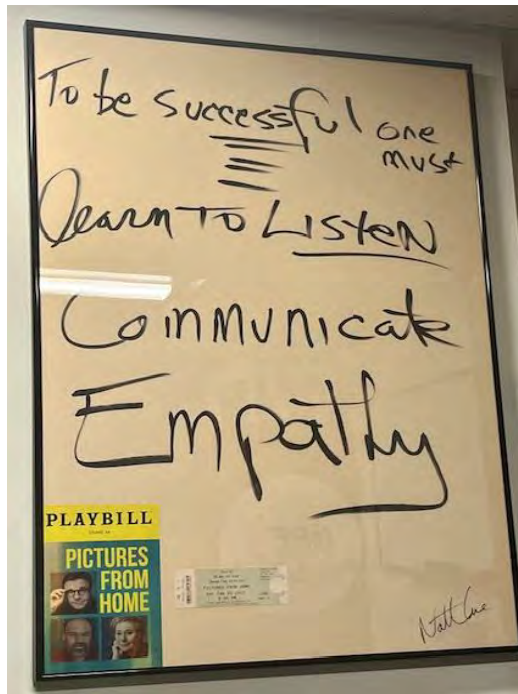 To be successful one
must
learn TO LISTEN
Communicate
Empathy
PLAYBILL
PICTURES
FROM
HOME